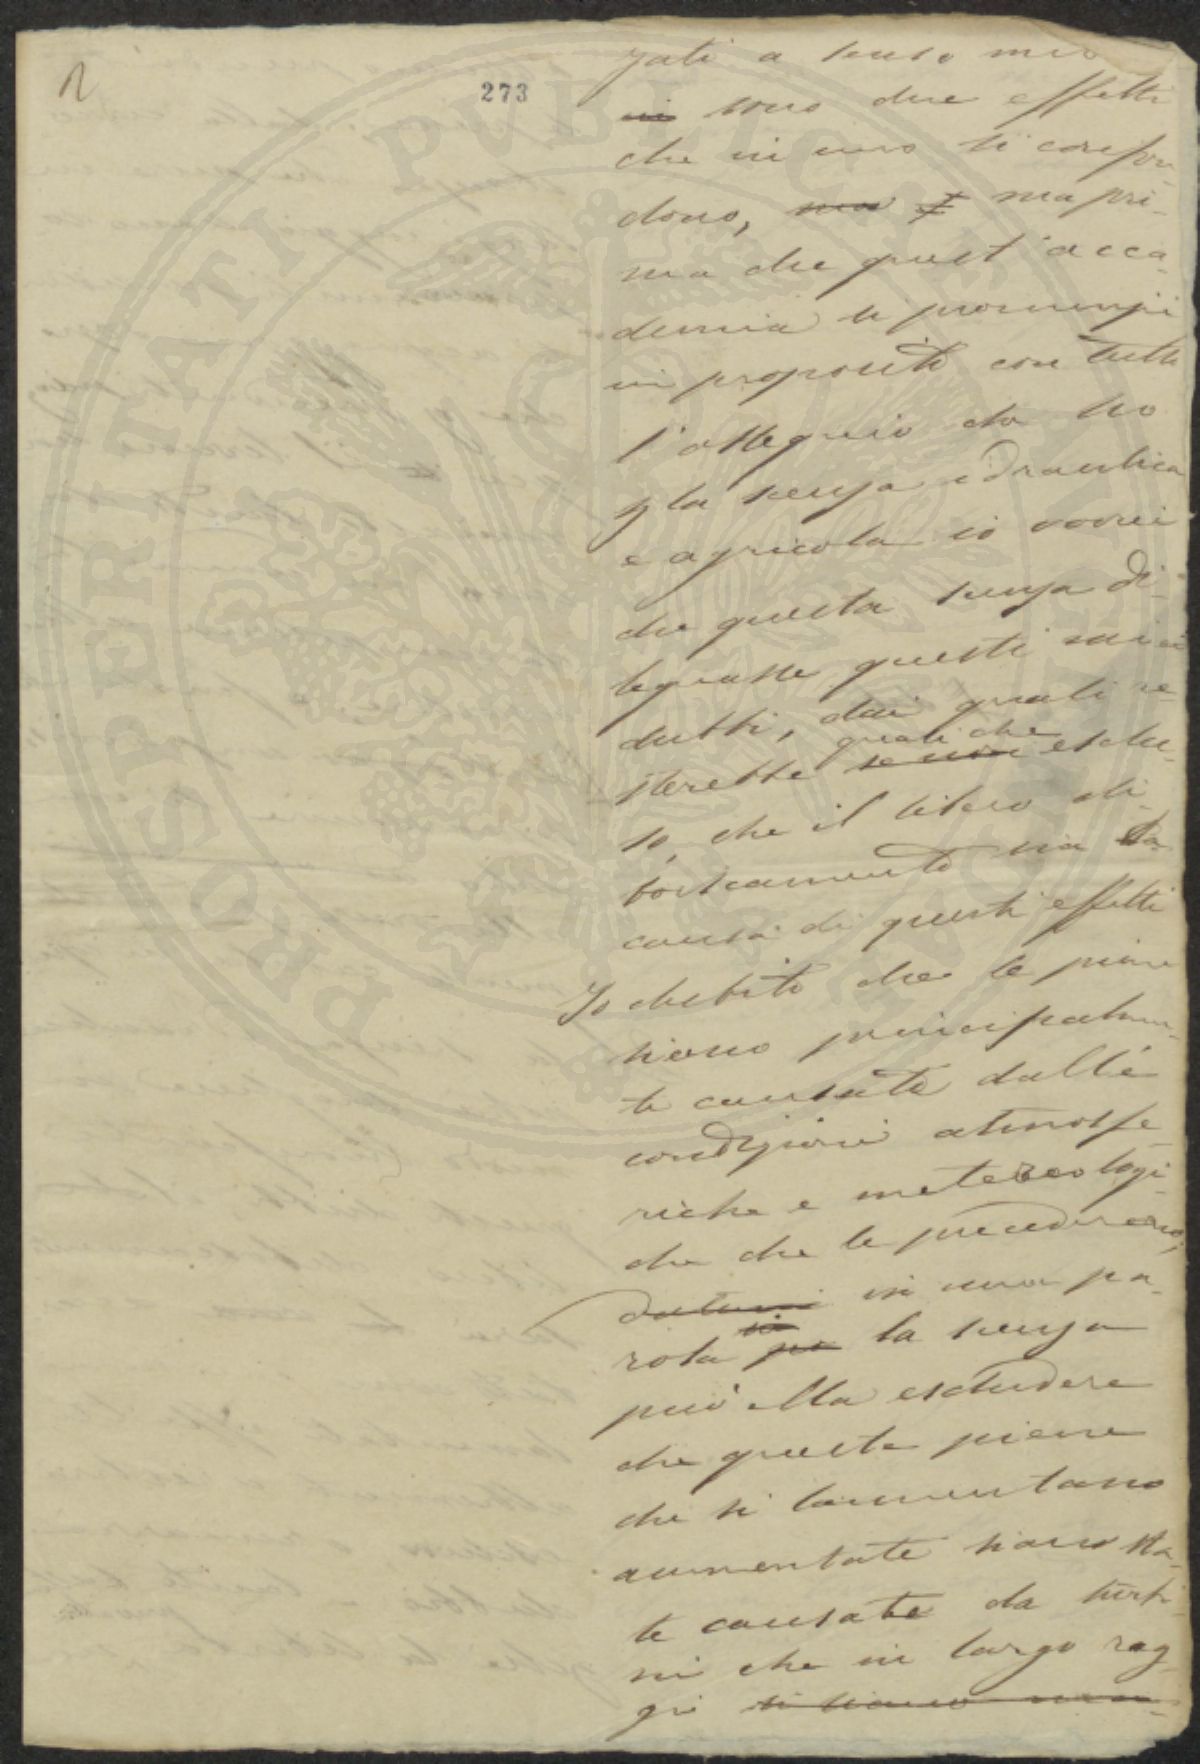 2
273
zati a senso mio
in sono due effetti
che in uno si confon-
dono, ma ma pri-
ma che quest'acca-
demia si pronunzi
in proposito con tutto
l'ossequio che ho
p la scienza idraulica
e agricola io vorrei
che questa scienza di-
leguasse questi miei
dubbi, dai quali re-
quali che
sterebbe se non esclu-
so, che il libero di-
boscamento sia la
causa di questi effetti
Io dubito che le piene
siano principalmen-
te causate dalle
condizioni atmosfe-
riche e metereologi-
che che le precederono,
in una pa-
rola la scienza
può ella escludere
che queste piene
che si lamentano
aumentate siano sta-
te causate da turbi-
ni che in largo rag-
gi si siano
PROSPERITATI PVBLICAE AVGENDAE